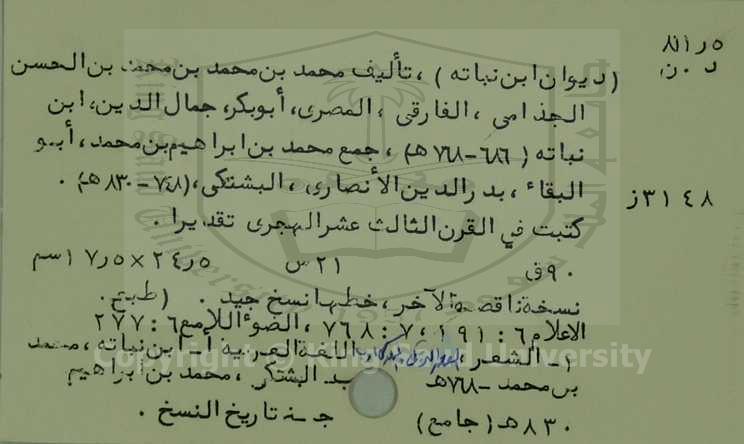 ٨١١ر٥
د ٠ ن
( ديوان ابن نباته ) ، تأليف محمد بن محمد بن محمد بن الحسن
الجذامي ، الفارقي ، المصرى ، أبوبكر، جمال الدين، ابن
نباته ( ٦٨٦-٧٦٨ هـ) ، جمع محمد بن ابراهيم بن محمد ، أبو
البقاء ، بدر الدين الأنصارى ، البشتكى، (٧٤٨ - ٨٣٠ هـ) ٠
٣١٤٨ ز
كتبت في القرن الثالث عشر الهجرى تقديرا .
٩٠ ق ٢١ س ٢٤٫٥ × ١٧٫٥ سم
نسخة ناقصة الآخر ، خطها نسخ جيد . ( طبع .
الاعلام ٦ : ١٩١ ، ٧ : ٧٦٨ ، الضوء اللامع ٦ : ٢٧٧
١- الشعر ، اللغة العربية أ - ابن نباته ، محمد
بن محمد -٧٦٨هـ ب - البشتكي ، محمد بن ابراهيم
٨٣٠ هـ ( جامع ) جـ - تاريخ النسخ .
Copyright © King Saud University